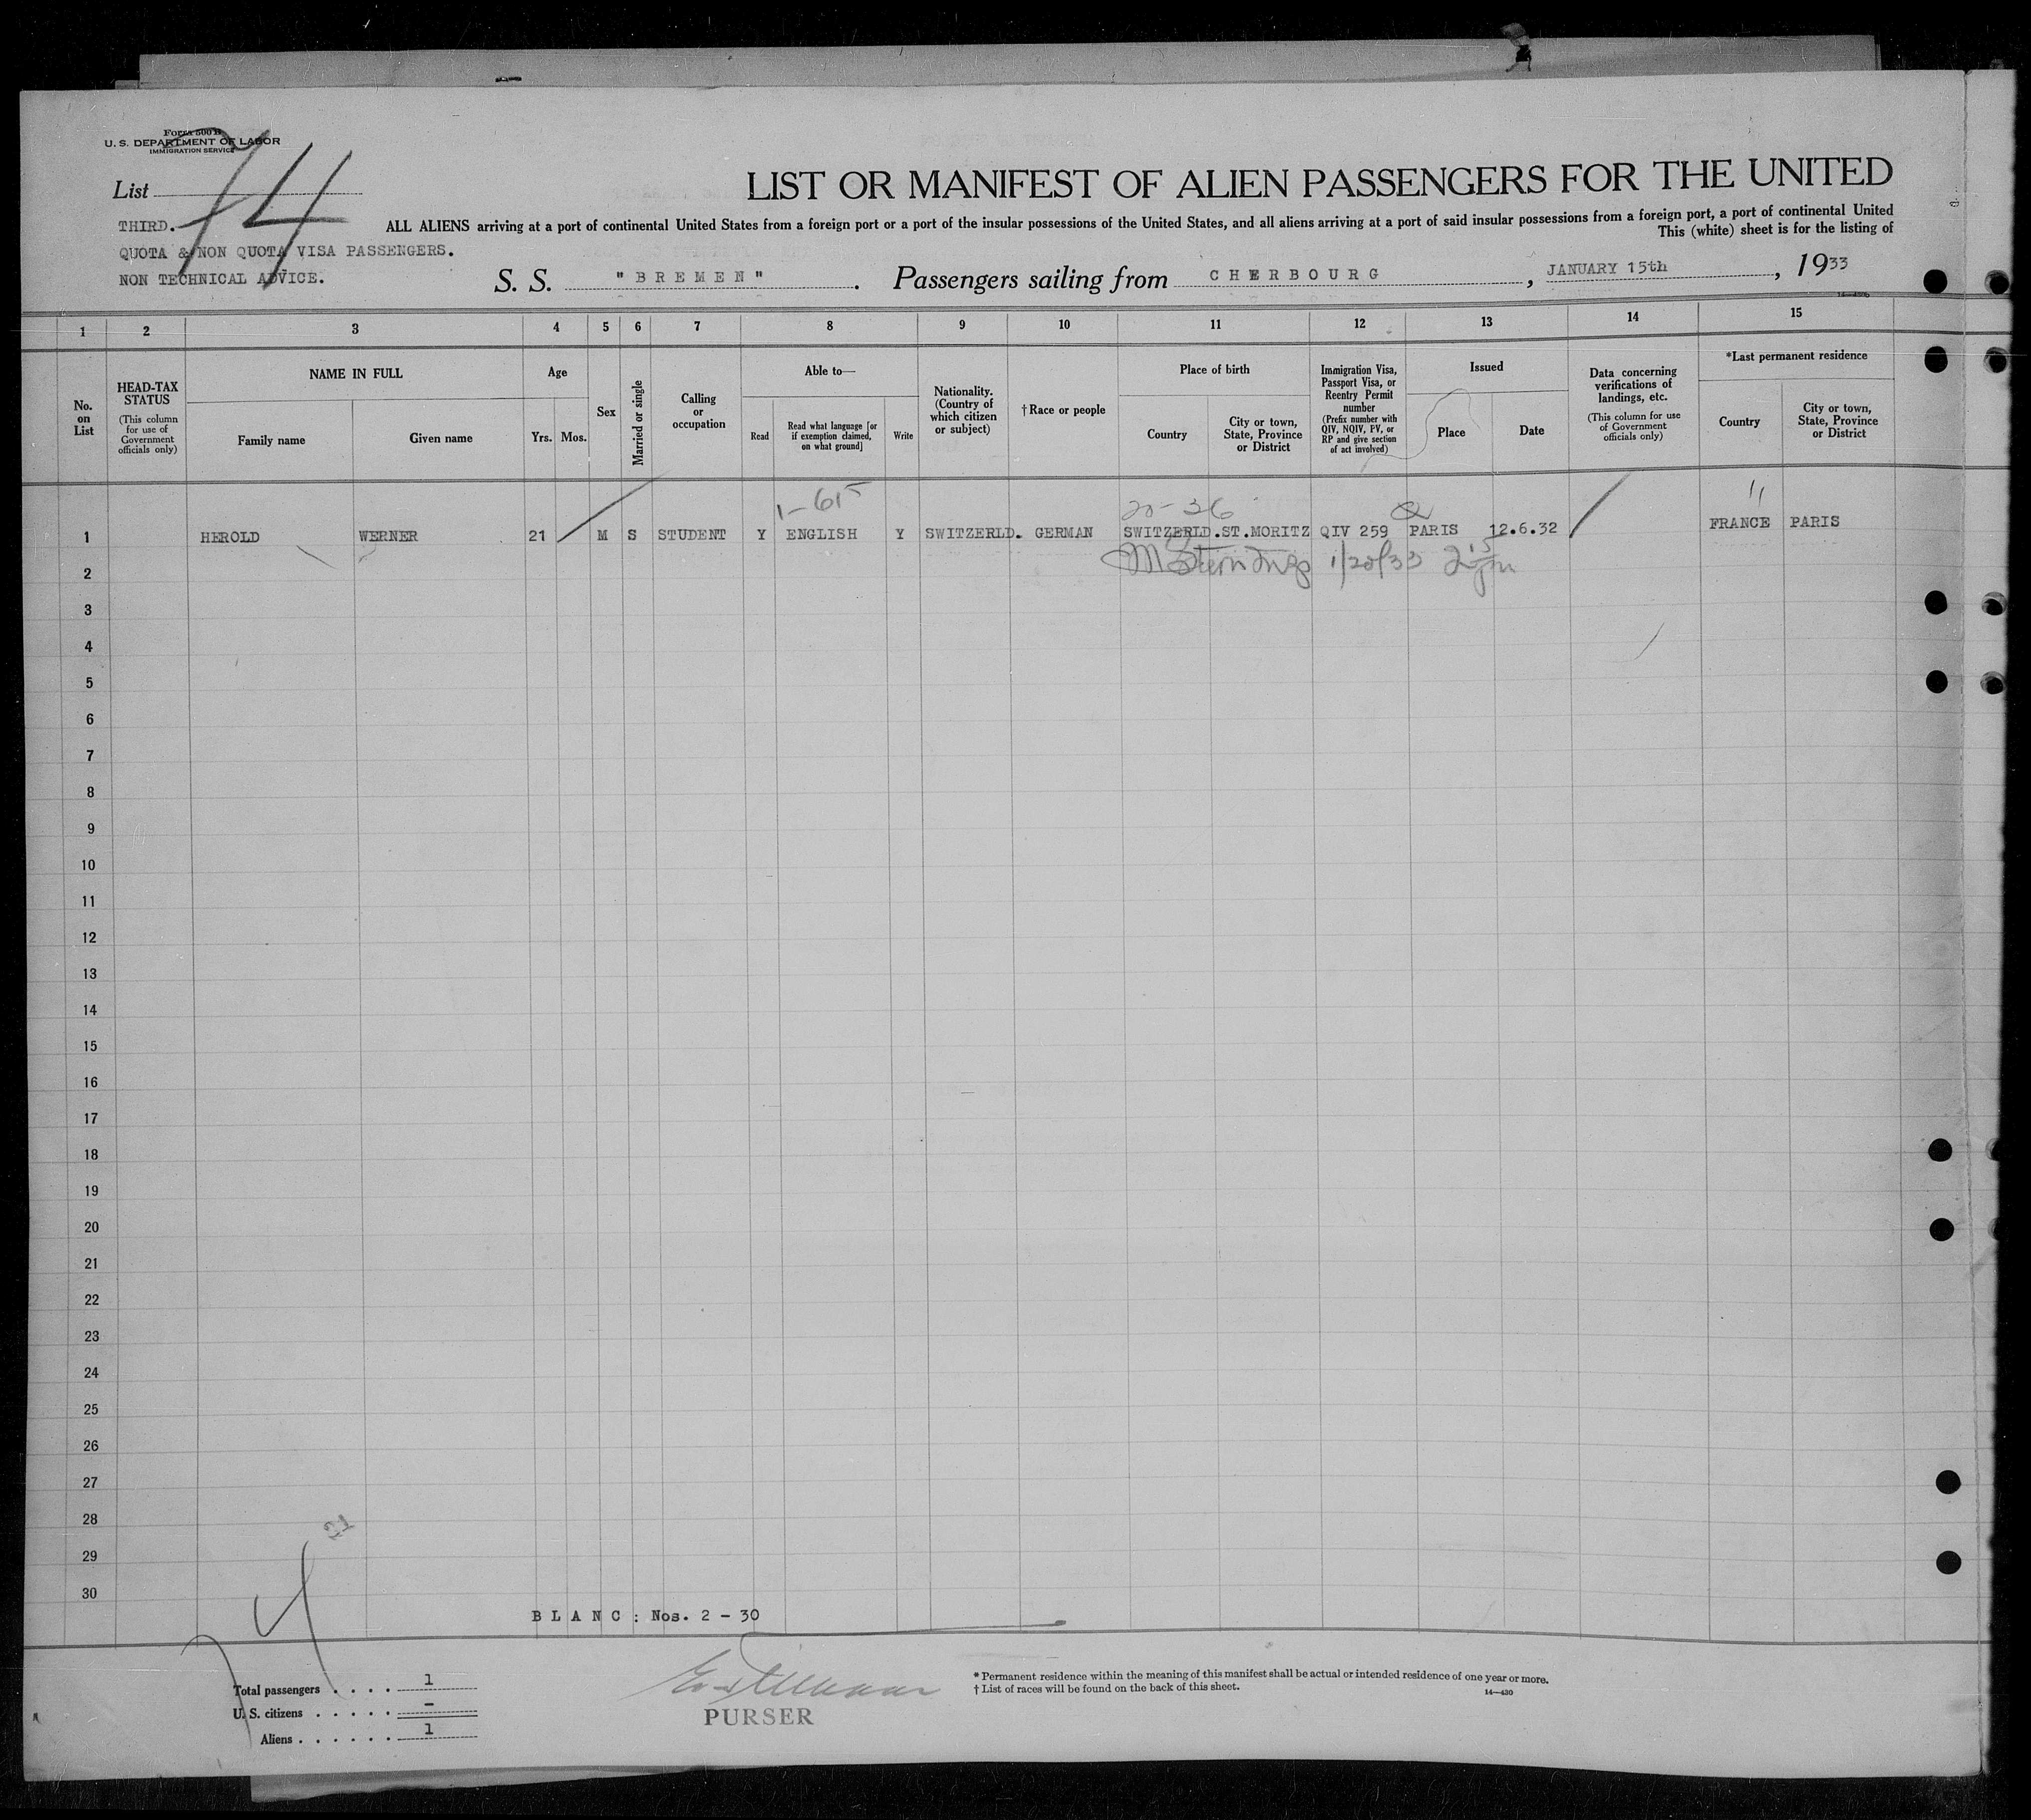 Form 500 B
U. S. DEPARTMENT OF LABOR
IMMIGRATION SERVICE
List
74
THIRD.
QUOTA & NON QUOTA VISA PASSENGERS.
NON TECHNICAL ADVICE.
LIST OR MANIFEST OF ALIEN PASSENGERS FOR THE UNITED
ALL ALIENS arriving at a port of continental United States from a foreign port or a port of the insular possessions of the United States, and all aliens arriving at a port of said insular possessions from a foreign port, a port of continental United
This (white) sheet is for the listing of
S. S. "BREMEN". Passengers sailing from CHERBOURG, JANUARY 15th, 1933
1 2 3 4 5 6 7 8 9 10 11 12 13 14 15
No. on List
HEAD-TAX STATUS
(This column for use of Government officials only)
NAME IN FULL
Family name
Given name
Age
Yrs. Mos.
Sex
Married or single
Calling or occupation
Able to—
Read
Read what language [or if exemption claimed, on what ground]
Write
Nationality. (Country of which citizen or subject)
†Race or people
Place of birth
Country
City or town, State, Province or District
Immigration Visa, Passport Visa, or Reentry Permit number
(Prefix number with QIV, NQIV, PV, or RP and give section of act involved)
Issued
Place
Date
Data concerning verifications of landings, etc.
(This column for use of Government officials only)
*Last permanent residence
Country
City or town, State, Province or District
1-615
20-36
Q
1 HEROLD WERNER 21 M S STUDENT Y ENGLISH Y SWITZERLD. GERMAN SWITZERLD. ST.MORITZ QIV 259 PARIS 12.6.32 FRANCE PARIS
1/20/33
2
3
4
5
6
7
8
9
10
11
12
13
14
15
16
17
18
19
20
21
22
23
24
25
26
27
28
29
30
BLANC: Nos. 2 - 30
Total passengers . . . . 1
U. S. citizens . . . . . –
Aliens . . . . . . 1
PURSER
* Permanent residence within the meaning of this manifest shall be actual or intended residence of one year or more.
† List of races will be found on the back of this sheet.
14—430